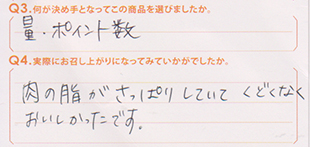 Q3.何が決め手となってこの商品を選びましたか。
量・ポイント数
Q4.実際にお召し上がりになってみていかがでしたか。
肉の脂がさっぱりしていてくどくなく
おいしかったです。